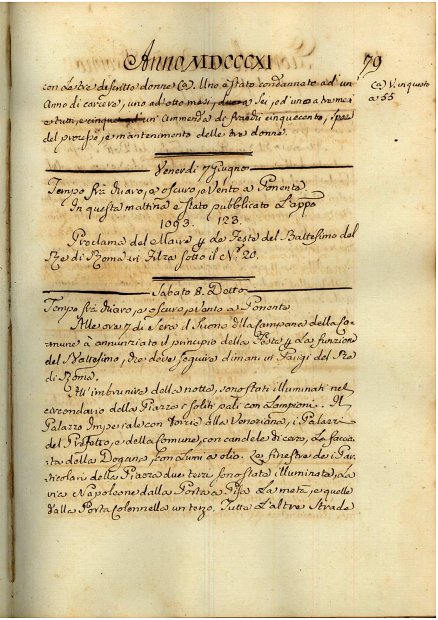 Anno MDCCCXI
79
con le tre descritte donne Ca. Uno è stato condannato ad un
Anno di carcere, uno ad otto mesi, due a Sei, ed uno a tre mesi
e tutti, e cinque ad un Ammenda di franchi cinquecento, spese
del processo, e mantenimento delle tre donne.
Ca. V. in questo
a 55
Venerdì 7 Giugno
Tempo frà chiaro, e oscuro, e Vento a Ponente
In questa mattina è stato pubblicato l'appo
1093. 123.
Proclama del Maire p le Feste del Battesimo del
Re di Roma in Filza sotto il N.º 20.
Sabato 8. Detto
Tempo frà chiaro, e oscuro, e Vento a Ponente
Alle ore 7 di Sera il Suono della Campana della Co-
mune à annunziato il principio della Festa p la funzione
del Battesimo, che deve seguire dimani in Parigi del Re
di Roma.
All'imbrunire della notte, sono stati illuminati nel
circondario della Piazza i soliti pali con Lampioni. Il
Palazzo Imperiale con Torcie alla Veneziana, i Palazzi
del Prefetto, e della Comune, con candele di cera, La faccia-
ta della Dogana, con Lumi a olio. Le finestre dei Par-
ticolari della Piazza due terzi sono state illuminate, La
via Napoleone dalla Porta a Pisa La metà, e quelle
dalla Porta Colonnella un terzo. Tutte L'altre Strade